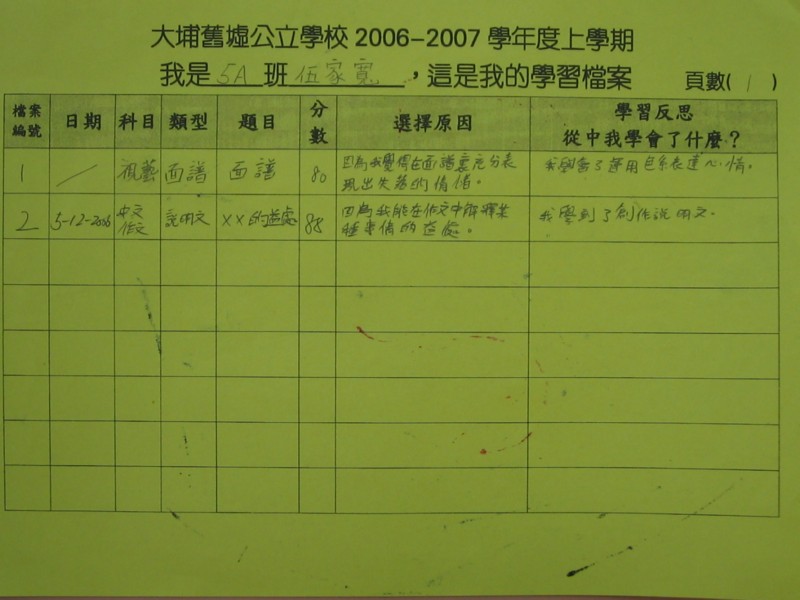 大埔舊墟公立學校 2006-2007 學年度上學期
我是 5A 班 伍家寬，這是我的學習檔案 頁數( 1 )
檔案編號 日期 科目 類型 題目 分數 選擇原因 學習反思 從中我學會了什麼？
1 ／ 視藝 面譜 面譜 80 因為我覺得色面譜裏充分表
現出失落的情俏。 我學會了運用色系表達心情。
2 5-12-2006 中文 作文 說明文 XX的益處 88 因為我能在作文中解釋某
種事情的益處。 我學到了創作說明文.